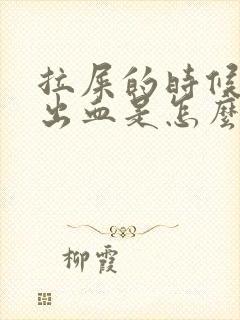 拉屎的時候
出血是怎麼
柳霞